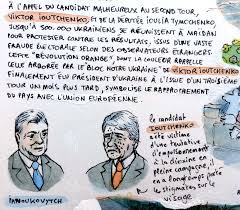 À L'APPEL DU CANDIDAT MALHEUREUX AU SECOND TOUR,
VIKTOR IOUTCHENKO ET DE LA DÉPUTÉE IOULIA TYMOCHENKO,
JUSQU'À 500.000 UKRAINIENS SE RÉUNISSENT À MAÏDAN
POUR PROTESTER CONTRE LES RÉSULTATS, ISSUS D'UNE VASTE
FRAUDE ÉLECTORALE SELON DES OBSERVATEURS ÉTRANGERS.
CETTE "RÉVOLUTION ORANGE", DONT LA COULEUR RAPPELLE
CELLE ARBORÉE PAR LE BLOC NOTRE UKRAINE" DE VIKTOR IOUTCHENKO
FINALEMENT ÉLU PRÉSIDENT D'UKRAINE À L'ISSUE D'UN TROISIÈME
TOUR UN MOIS PLUS TARD, SYMBOLISE LE RAPPROCHEMENT
DU PAYS AVEC L'UNION EUROPÉENNE.
le candidat
IOUTCHENKO
a été victime
d'une tentative
d'empoisonnement
à la dioxine en
pleine campagne, il
en a gardé
les stigmates sur le
visage
IANOUKOVYTCH